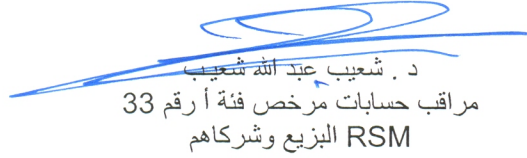 د . شعيب عبد الله شعيب
مراقب حسابات مرخص فئة أ رقم 33
RSM البزيع وشركاهم